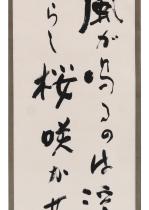 風が鳴るのは深
らし桜咲かせ